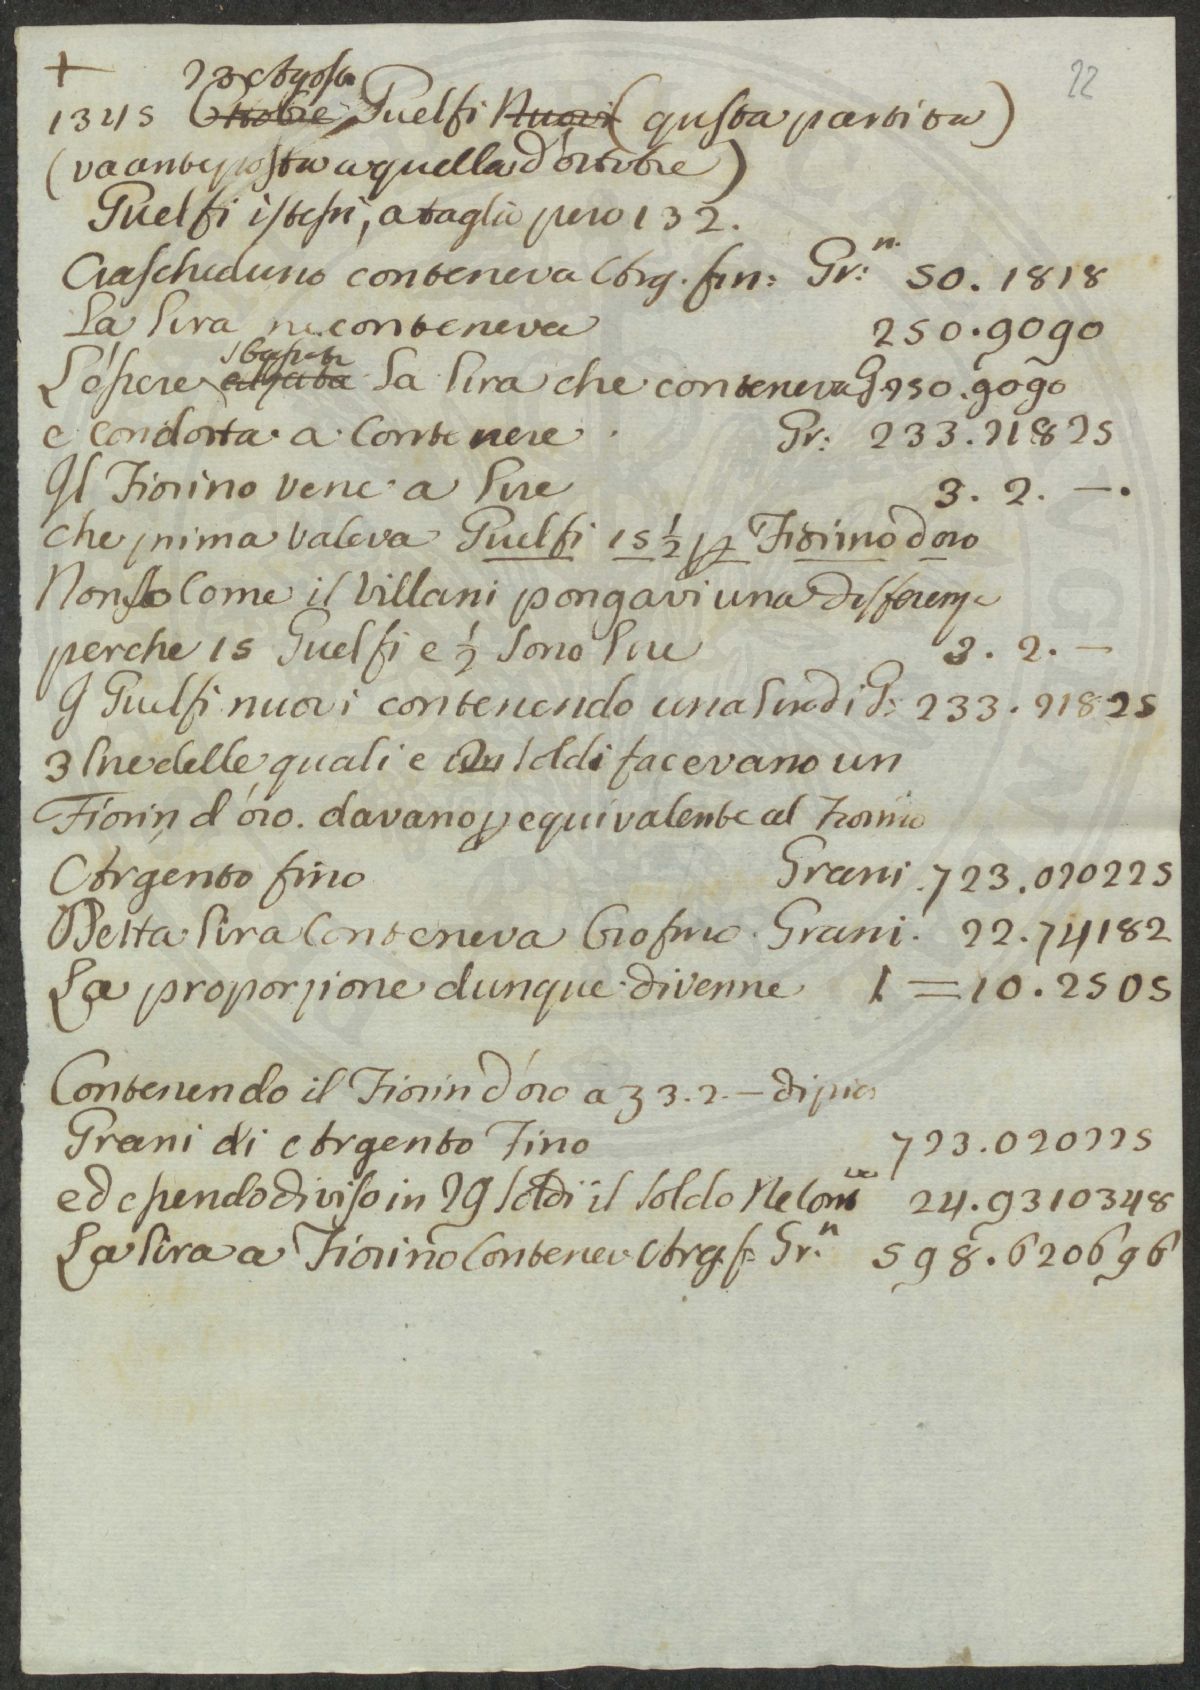 +
22
23 Agosto
1345 Ottobre Guelfi Nuovi (questa partita)
(va anteposta a quella d'ottobre)
Guelfi istessi, a taglio pero 132.
Ciascheduno conteneva Arg. fin: Gr:n. 50.1818
La lira ne conteneva 250.9090
sbassata
L'essere alzata la lira che conteneva G. 250.9090
e condotta a contenere Gr: 233.21825
Il Fiorino vene a lire 3. 2. —.
che prima valeva Guelfi 15 1/2 p Fiorino d'oro
Non so come il Villani pongavi una differenza
perche 15 Guelfi e 1/2 sono lire 3. 2. —
I Guelfi nuovi contenendo una lira di G: 233.21825
3 lire delle quali e soldi facevano un
Fiorin d'oro. davano p equivalente al Fiorino
Argento fino Grani. 723.020225
Detta lira conteneva Oro fino. Grani. 22.74182
La proporzione dunque divenne 1 = 10.2505
Contenendo il Fiorin d'oro a 3.2.— di pic
Grani di Argento Fino 723.020225
ed essendo diviso in 29 soldi il soldo ne contneva 24.9310348
La lira a Fiorino Contenev. Arg. f: Gr:n 598.620696